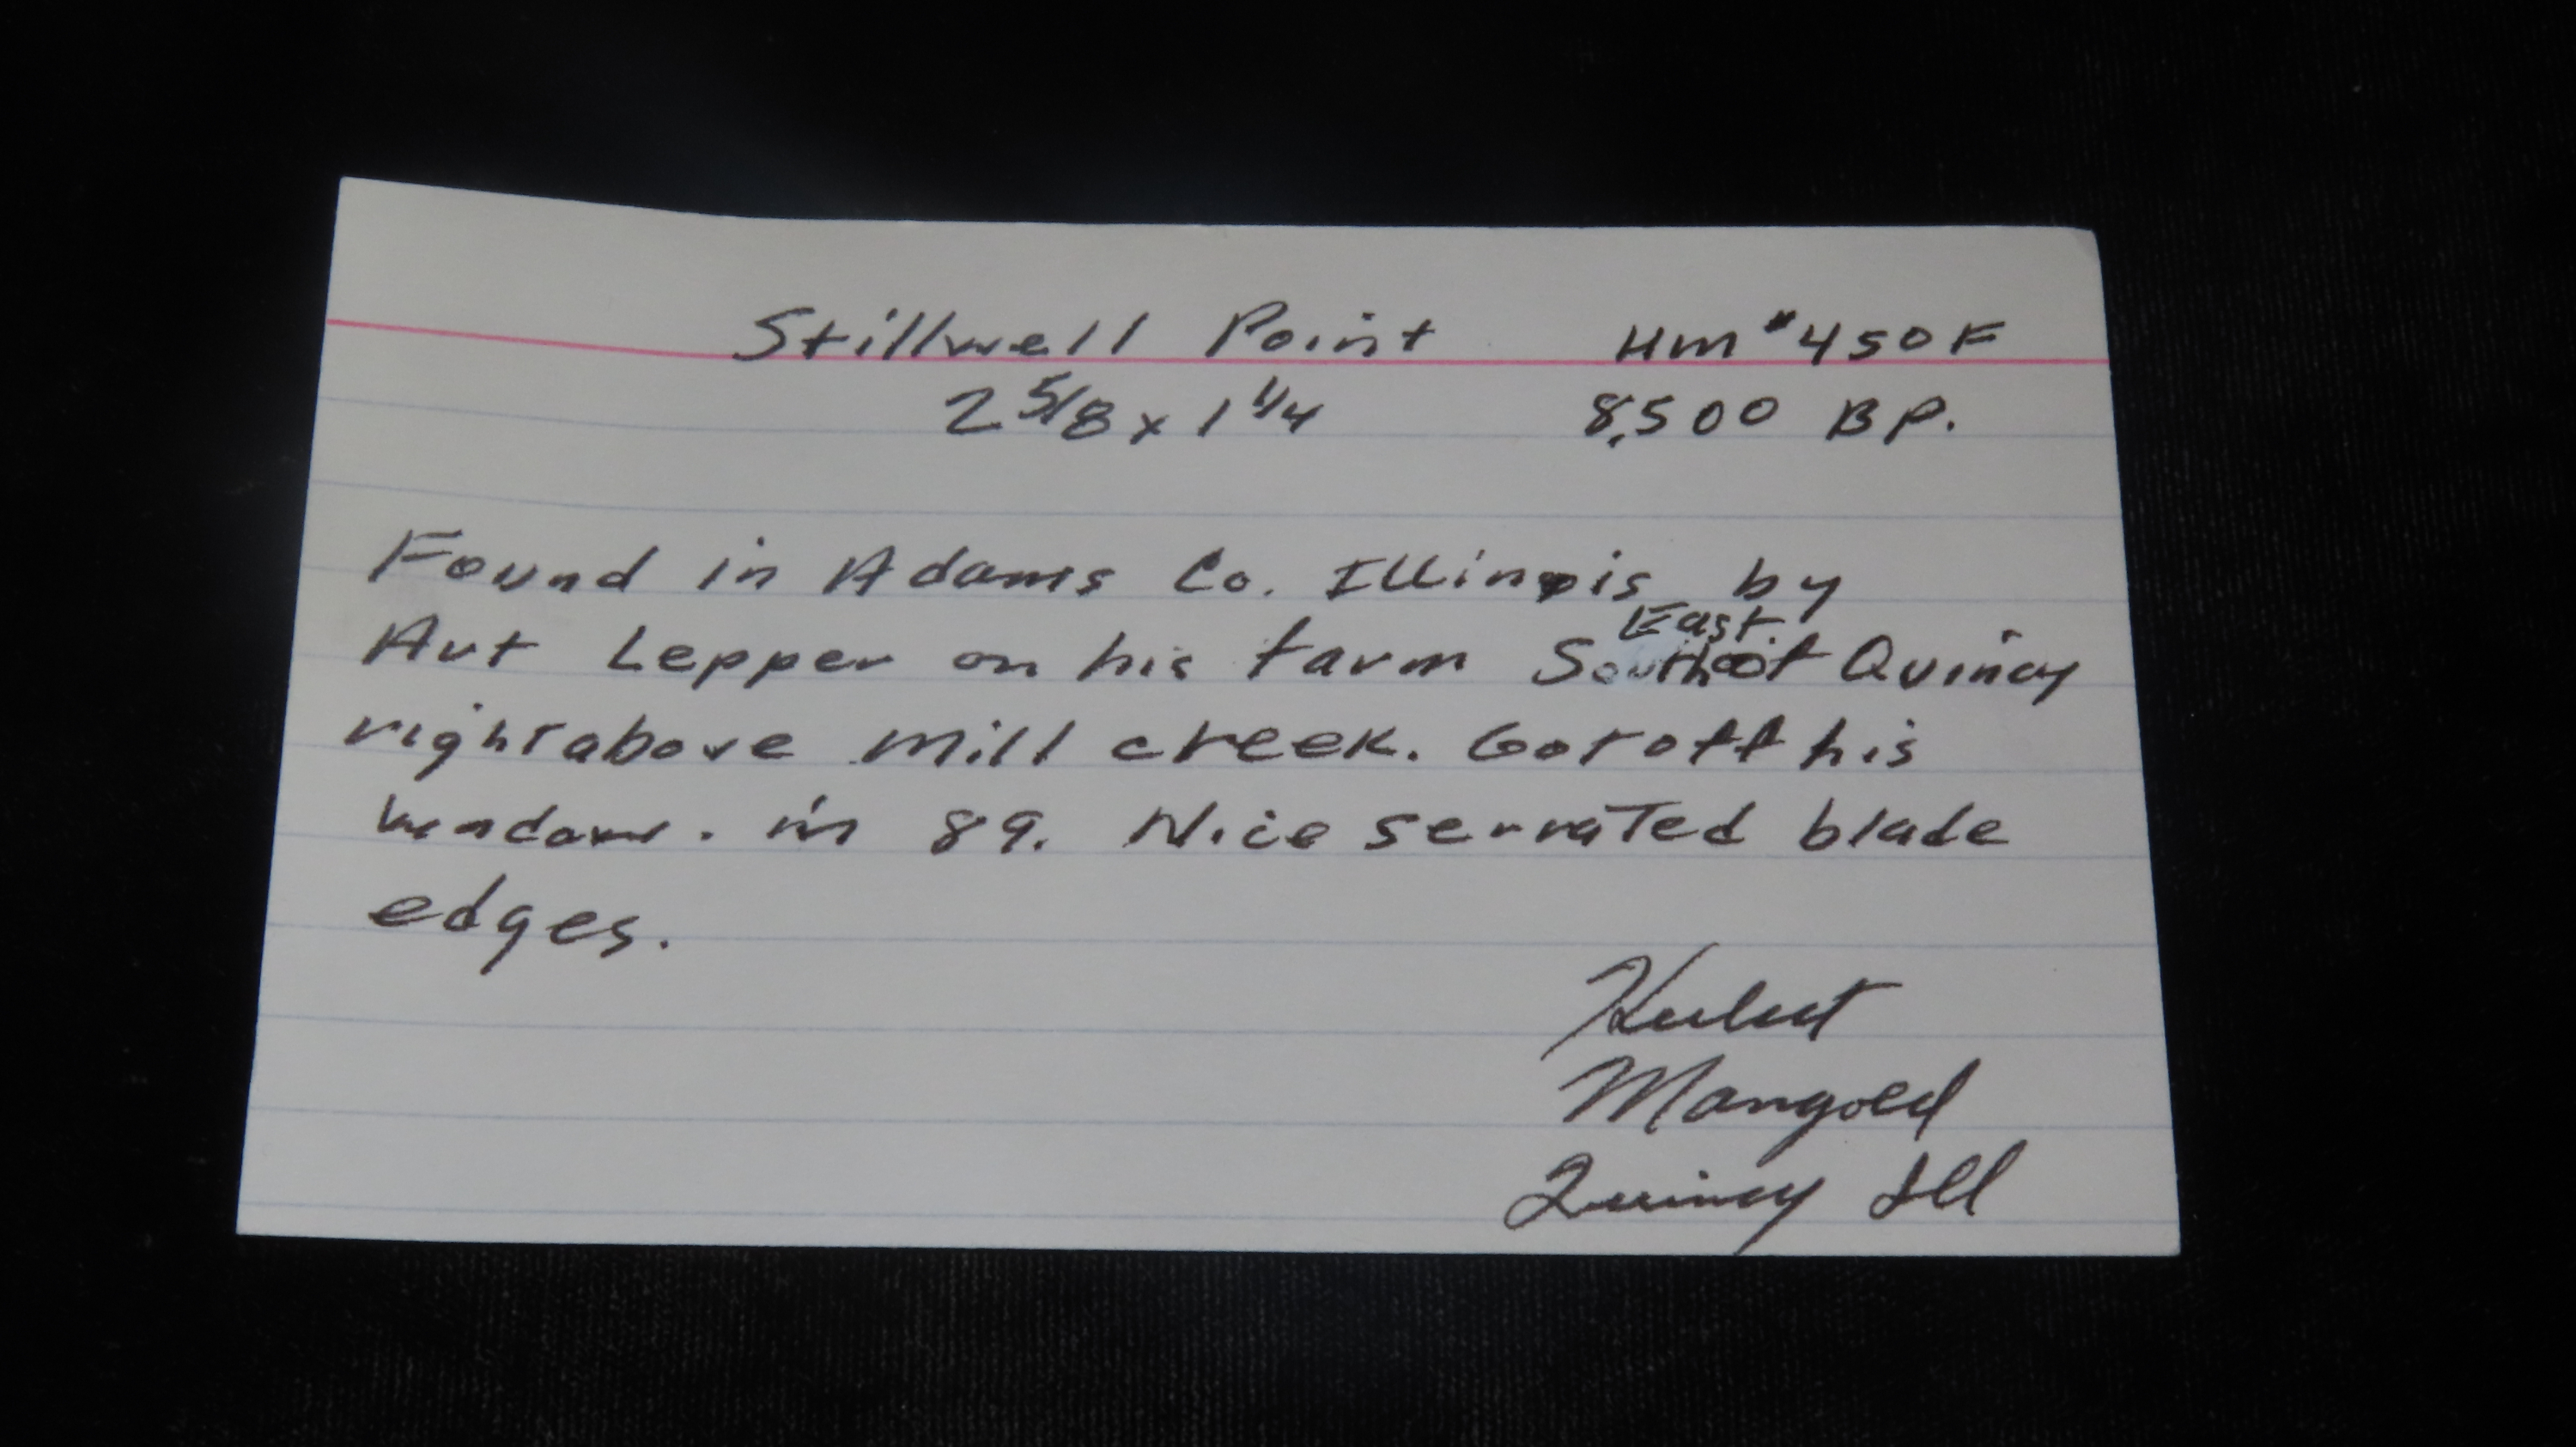 Stillwell Point HM #450F
2 5/8 x 1 1/4 8,500 BP.
Found in Adams Co. Illinois by
East
Art Lepper on his farm South of Quincy
right above mill creek. Got off his
in 89. Nice serrated blade
edges.
Herbert
Mangold
Quincy Ill